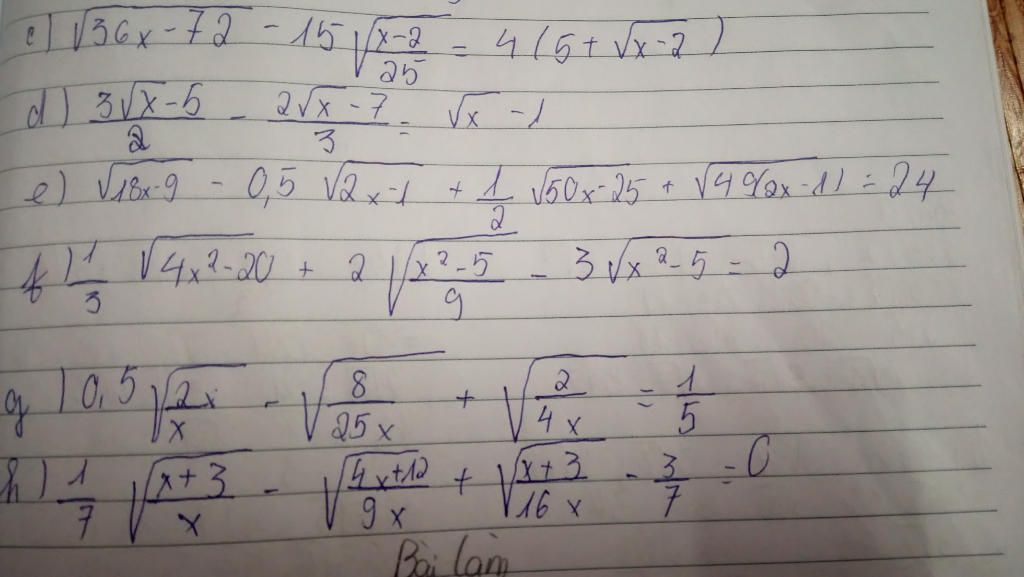 c) √(36x-72) - 15 √((x-2)/25) = 4(5+√(x-2))
d) (3√x-5)/2 - (2√x-7)/3 = √x - 1
e) √(18x-9) - 0,5 √(2x-1) + 1/2 √(50x-25) + √(49(2x-1)) = 24
f) 1/3 √(4x²-20) + 2 √((x²-5)/9) - 3 √(x²-5) = 2
g) 0,5 √(2x/x) - √(8/(25x)) + √(2/(4x)) = 1/5
h) 1/7 √((x+3)/x) - √((4x+12)/(9x)) + √((x+3)/(16x)) - 3/7 = 0
Bài làm